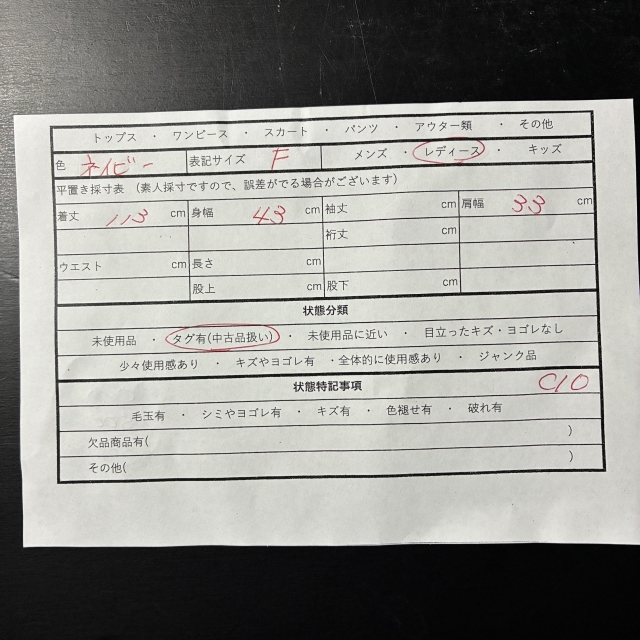 トップス ・ ワンピース ・ スカート ・ パンツ ・ アウター類 ・ その他
色 ネイビー 表記サイズ F メンズ ・ レディース ・ キッズ
平置き採寸表 （素人採寸ですので、誤差がでる場合がございます）
着丈 113 cm 身幅 43 cm 袖丈 cm 肩幅 33 cm
裄丈 cm
ウエスト cm 長さ cm
股上 cm 股下 cm
状態分類
未使用品 ・ タグ有(中古品扱い) ・ 未使用品に近い ・ 目立ったキズ・ヨゴレなし
少々使用感あり ・ キズやヨゴレ有 ・全体的に使用感あり ・ ジャンク品
状態特記事項 C10
毛玉有 ・ シミやヨゴレ有 ・ キズ有 ・ 色褪せ有 ・ 破れ有
欠品商品有( )
その他( )